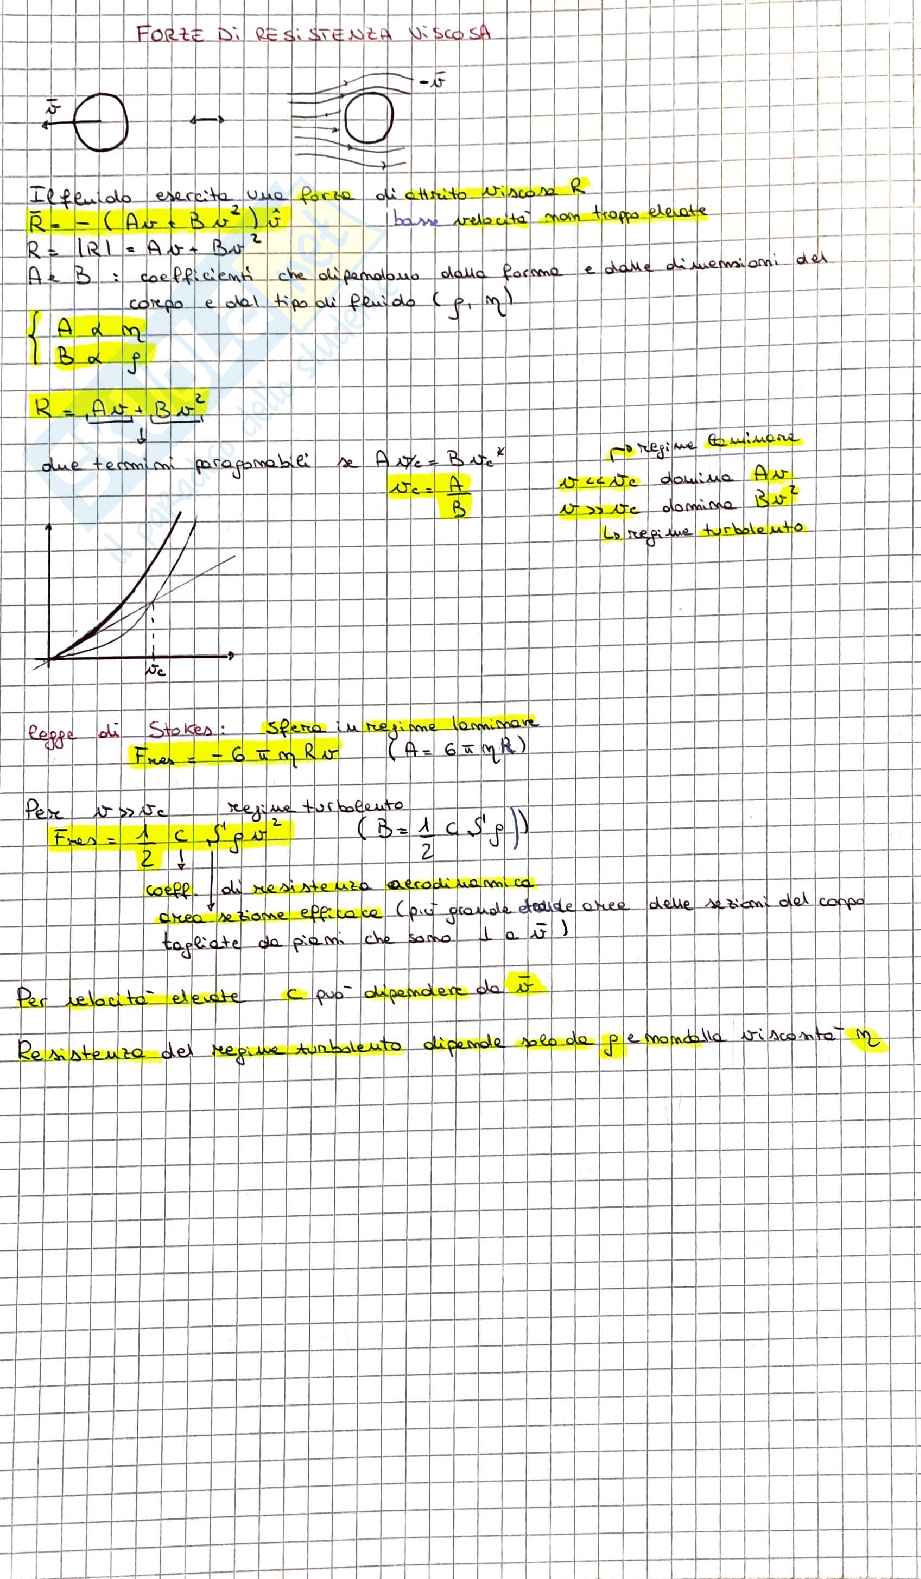 FORZE DI RESISTENZA VISCOSA
v̄
-v̄
Il fluido esercita una forza di attrito viscosa R
R̄ = - (Av + Bv²) v̂ basse velocità non troppo elevate
R = |R̄| = Av + Bv²
A e B : coefficienti che dipendono dalla forma e dalle dimensioni del
corpo e dal tipo di fluido (ρ, η)
{ A ∝ η
B ∝ ρ
R = Av + Bv²
↓
due termini paragonabili se A vc = B vc²
vc = A/B
↱ regime laminare
v << vc domina Av
v >> vc domina Bv²
↳ regime turbolento
vc
legge di Stokes: Sfera in regime laminare
Fres = - 6 π η R v (A = 6 π η R)
Per v >> vc regime turbolento
Fres = 1/2 C S ρ v² (B = 1/2 C S ρ))
coeff. di resistenza aerodinamica
area sezione efficace (più grande delle aree delle sezioni del corpo
tagliate da piani che sono ⊥ a v̄)
Per velocità elevate C può dipendere da v̄
Resistenza del regime turbolento dipende solo da ρ e non dalla viscosità η
skuola.net
il paradiso dello studente